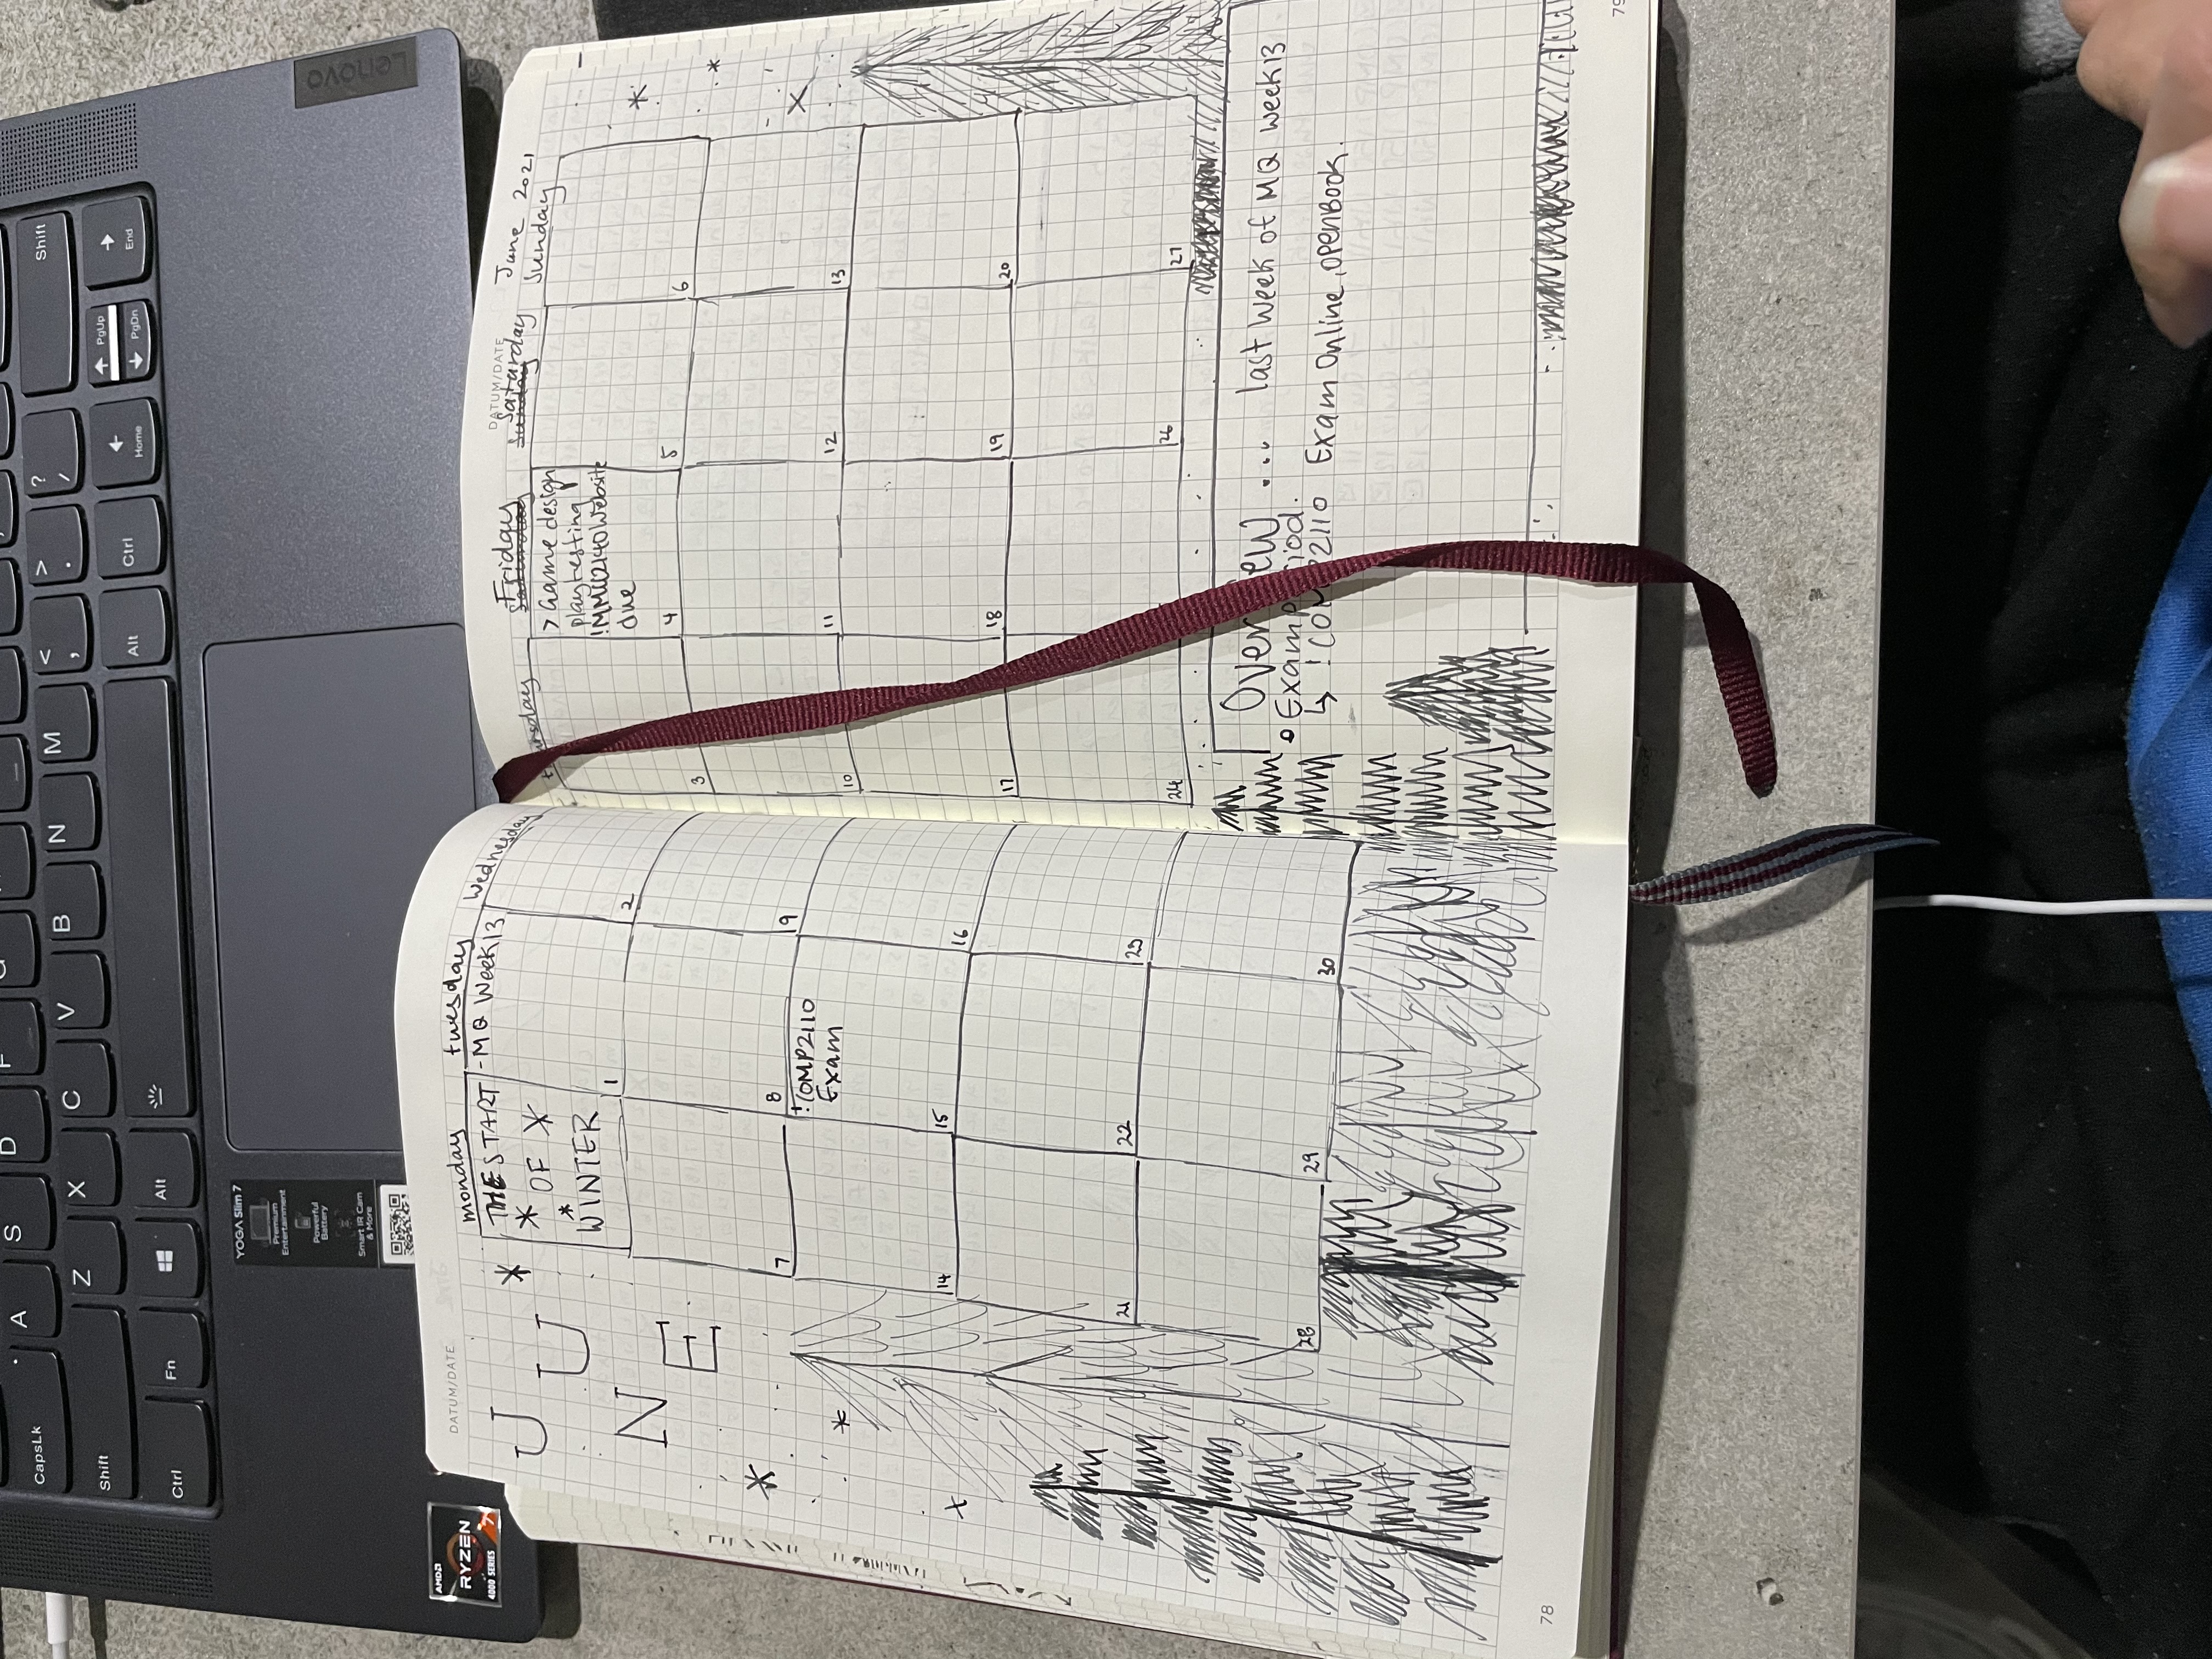 CapsLk A S D F G
Shift Z X C V B N M < , > . ? / Shift
Ctrl Fn Alt Alt Ctrl Home PgUp PgDn End
YOGA Slim 7
Premium
Entertainment
Powerful
Battery
Smart IR Cam
& More
Lenovo
AMD
RYZEN
4000 SERIES 7
DATUM/DATE
JUNE
monday tuesday Wednesday
THE START
OF
WINTER
-MQ Week 13
1 2
7 8 9
!COMP2110
Exam
14 15 16
21 22 23
28 29 30
78
DATUM/DATE
June 2021
thursday Friday Saturday Sunday
Saturday Sunday
> Game design
playtesting
!MMCC2140 Website
due
3 4 5 6
10 11 12 13
17 18 19 20
24 26 27
last week of MQ week 13
!COMP2110 Exam Online, OPENBOOK.
79